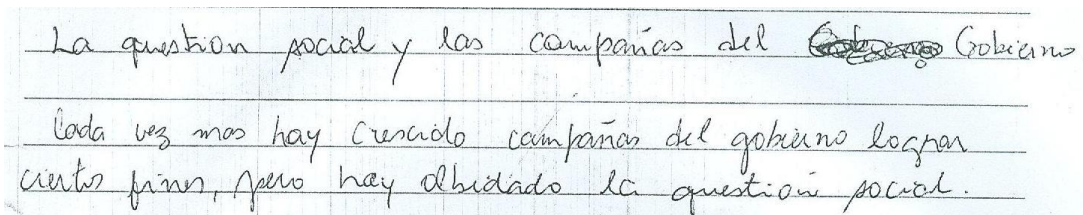 La question social y las campañas del Gobierno
Cada vez mas hay crescido campañas del gobierno lograr
ciertos fines, pero hay olbidado la question social.